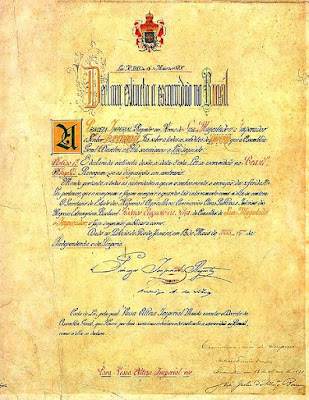 Declara extincta a escravidão no Brasil
A Princeza Imperial Regente em Nome de Sua Magestade o Imperador
o Senhor D. Pedro II, Faz saber a todos os subditos do Imperio que a Assembléa
Geral Decretou e Ella sanccionou a Lei seguinte:
Artigo 1º É declarada extincta desde a data d'esta Lei a escravidão no Brazil.
Artigo 2º Revogam-se as disposições em contrario.
Manda portanto a todas as autoridades a quem o conhecimento e execução da referida
Lei pertencer, que a cumpram e façam cumprir e guardar tão inteiramente como n'ella se contém.
O Secretario de Estado dos Negocios d'Agricultura, Commercio e Obras Publicas e Interino dos
Negocios Estrangeiros, Bacharel Rodrigo Augusto da Silva do Conselho de Sua Magestade
o Imperador, o faça imprimir, publicar e correr.
Dado no Palacio do Rio de Janeiro, em 13 de Maio de 1888, 67º da
Independencia e do Imperio.
Princeza Imperial Regente
Rodrigo A. da Silva
Carta de Lei, pela qual Vossa Alteza Imperial Manda executar o Decreto da
Assembléa Geral, que Houve por bem sanccionar declarando extincta a escravidão no Brazil,
como n'ella se declara.
Para Vossa Alteza Imperial ver